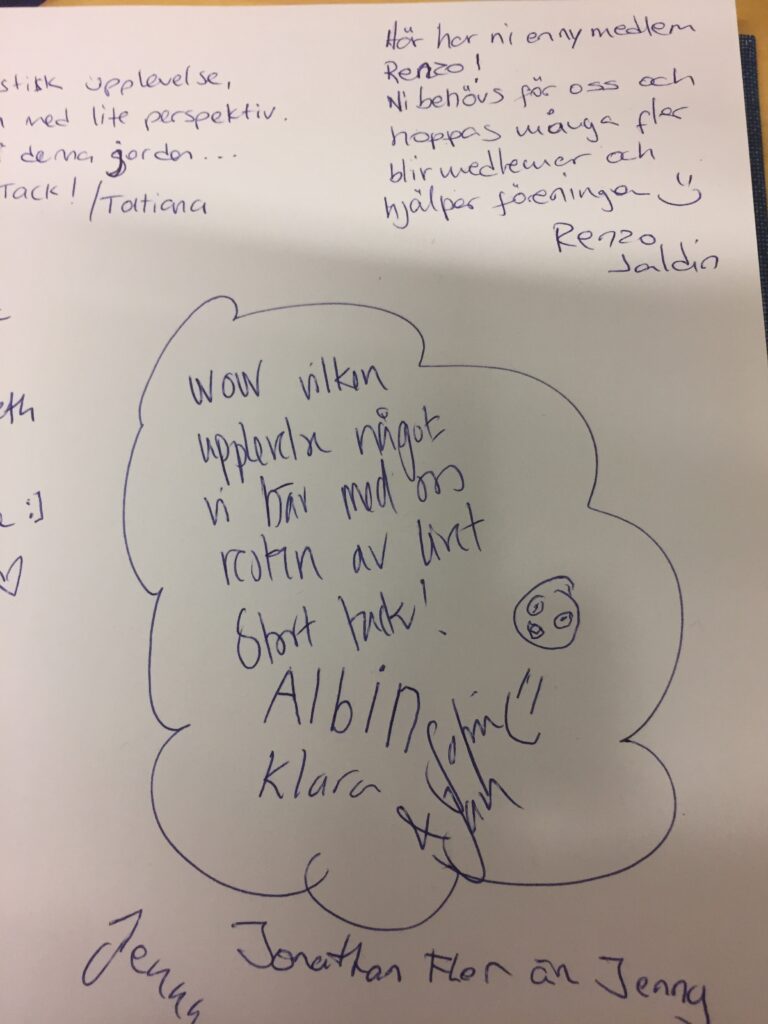 stisk upplevelse,
med lite perspektiv.
denna jorden...
TACK! /Tatiana
Här har ni en ny medlem
Renzo!
Ni behövs för oss och
hoppas många fler
blir medlemer och
hjälper föreningen :)
Renzo
Jaldin
eth
:]
♡
WOW vilken
upplevelse något
vi bär med oss
resten av livet
Stort tack!
Albin
Klara
&
Jenny
Jonathan Fler än Jenny